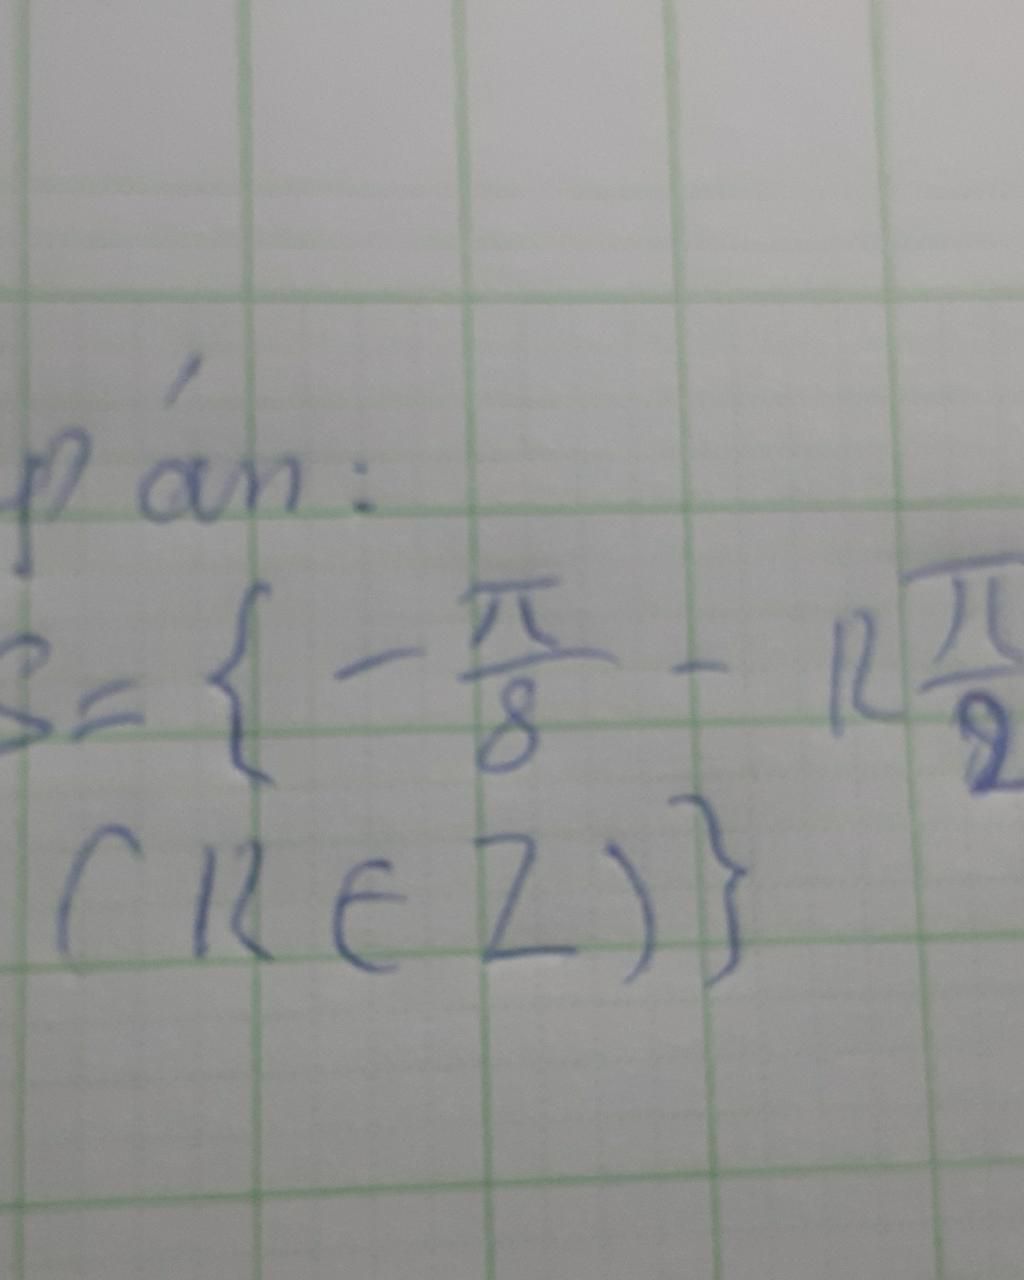 p án:
S = { - π/8 - k π/2
(k ∈ Z) }